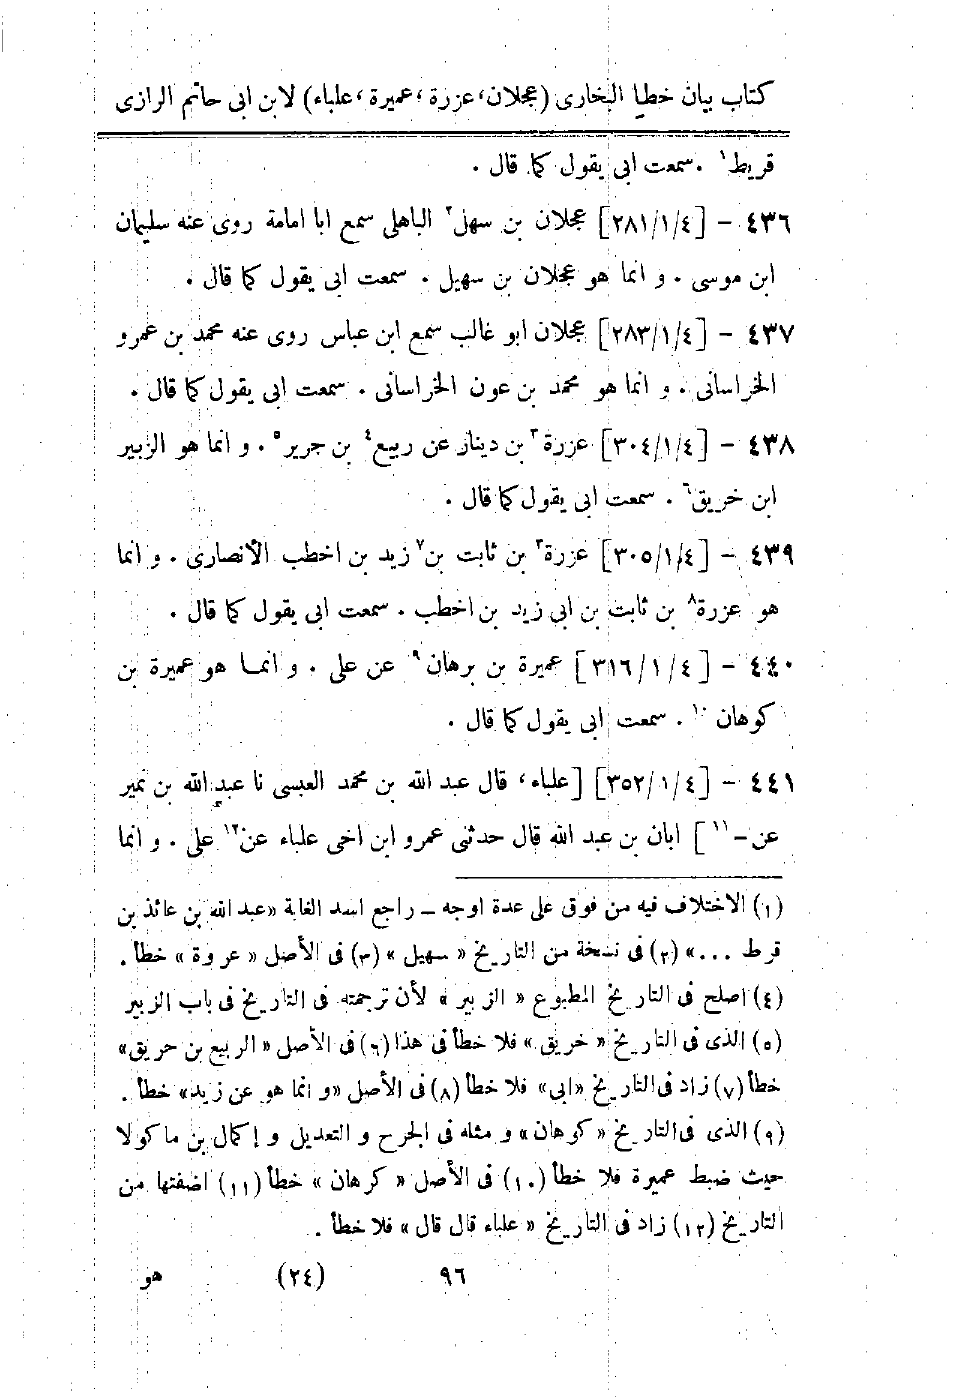 كتاب بيان خطا البخارى (عجلان، عزرة، عميرة، علباء) لابن ابى حاتم الرازى
قريط١ . سمعت ابى يقول كما قال .
٤٣٦ – [٢٨١/١/٤] عجلان بن سهل٢ الباهلى سمع ابا امامة روى عنه سليمان
ابن موسى . و انما هو عجلان بن سهيل . سمعت ابى يقول كما قال .
٤٣٧ – [٢٨٣/١/٤] عجلان ابو غالب سمع ابن عباس روى عنه محمد بن عمرو
الخراسانى . و انما هو محمد بن عون الخراسانى . سمعت ابى يقول كما قال .
٤٣٨ – [٣٠٤/١/٤] عزرة٣ بن دينار عن ربيع٤ بن جرير٥ . و انما هو الزبير
ابن خريق٦ . سمعت ابى يقول كما قال .
٤٣٩ – [٣٠٥/١/٤] عزرة٣ بن ثابت بن٧ زيد بن اخطب الأنصارى . و انما
هو عزرة٨ بن ثابت بن ابى زيد بن اخطب . سمعت ابى يقول كما قال .
٤٤٠ – [٣١٦/١/٤] عميرة بن برهان٩ عن على . و انما هو عميرة بن
كوهان١٠ . سمعت ابى يقول كما قال .
٤٤١ – [٣٥٢/١/٤] [علباء، قال عبد الله بن محمد العبسى نا عبد الله بن نمير
عن –١١] ابان بن عبد الله قال حدثنى عمرو ابن اخى علباء عن١٢ على . و انما
(١) الاختلاف فيه من فوق على عدة اوجه – راجع اسد الغابة «عبد الله بن عائذ بن
قرط ...» (٢) فى نسخة من التاريخ « سهيل » (٣) فى الأصل « عروة » خطأ .
(٤) اصلح فى التاريخ المطبوع « الزبير » لأن ترجمته فى التاريخ فى باب الزبير
(٥) الذى فى التاريخ « خريق » فلا خطأ فى هذا (٦) فى الأصل « الربيع بن حريق»
خطأ (٧) زاد فى التاريخ «ابى» فلا خطأ (٨) فى الأصل «و انما هو عن زيد» خطأ .
(٩) الذى فى التاريخ « كوهان» و مثله فى الجرح و التعديل و إكمال بن ماكولا
حيث ضبط عميرة فلا خطأ (١٠) فى الأصل « كرهان » خطأ (١١) اضفتها من
التاريخ (١٢) زاد فى التاريخ « علباء قال قال » فلا خطأ .
٩٦ (٢٤) هو